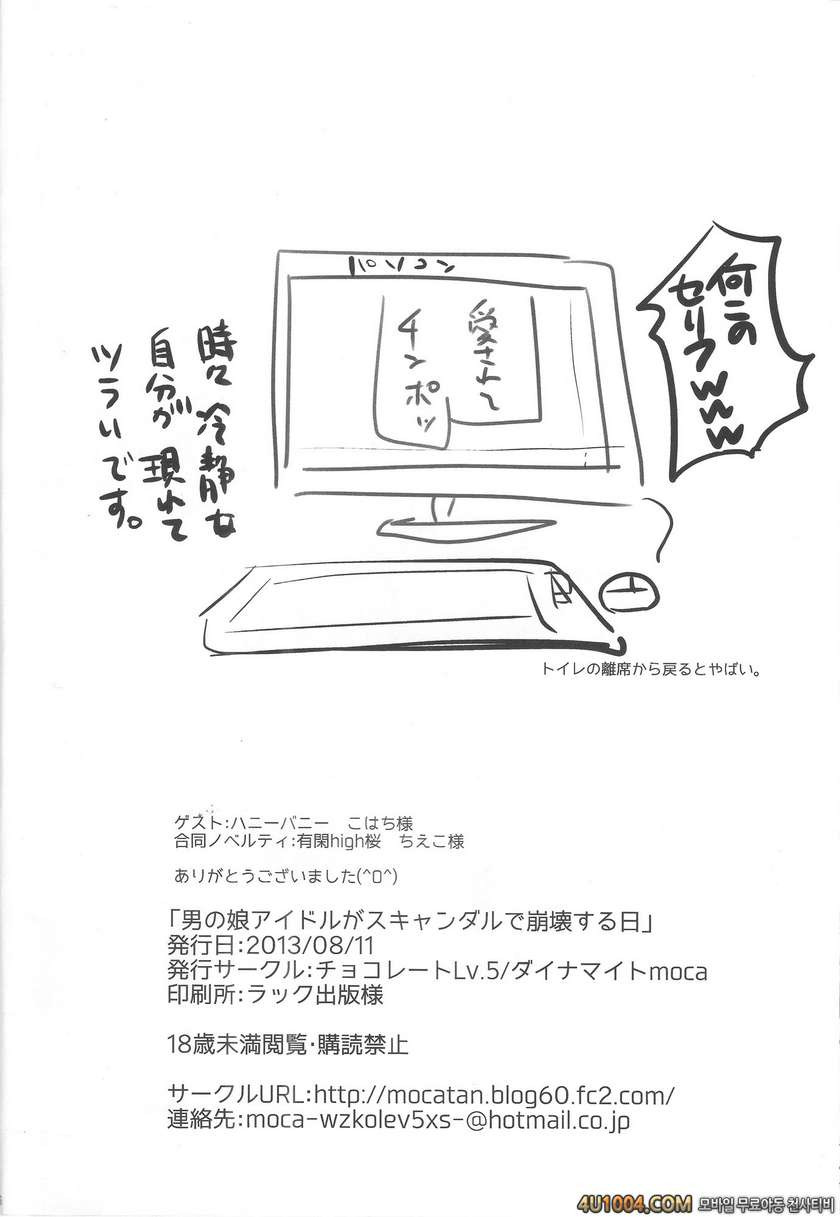 何この
セリフwww
パソコン
愛されて
チンポッ
時々冷静な
自分が現れて
ツラいです。
トイレの離席から戻るとやばい。
ゲスト:ハニーバニー　こはち様
合同ノベルティ:有閑high桜　ちえこ様
ありがとうございました(^0^)
「男の娘アイドルがスキャンダルで崩壊する日」
発行日:2013/08/11
発行サークル:チョコレートLv.5/ダイナマイトmoca
印刷所:ラック出版様
18歳未満閲覧・購読禁止
サークルURL:http://mocatan.blog60.fc2.com/
連絡先:moca-wzkolev5xs-@hotmail.co.jp
4U1004.COM 모바일 무료야동 천사티비